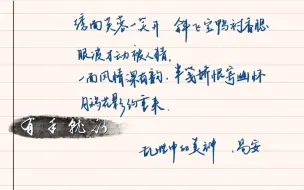 绣面芙蓉一笑开 斜飞宝鸭衬香腮
眼波才动被人猜.
一面风情深有韵, 半笺娇恨寄幽怀
月移花影约重来.
有手就行
乱世中的美神. 易安